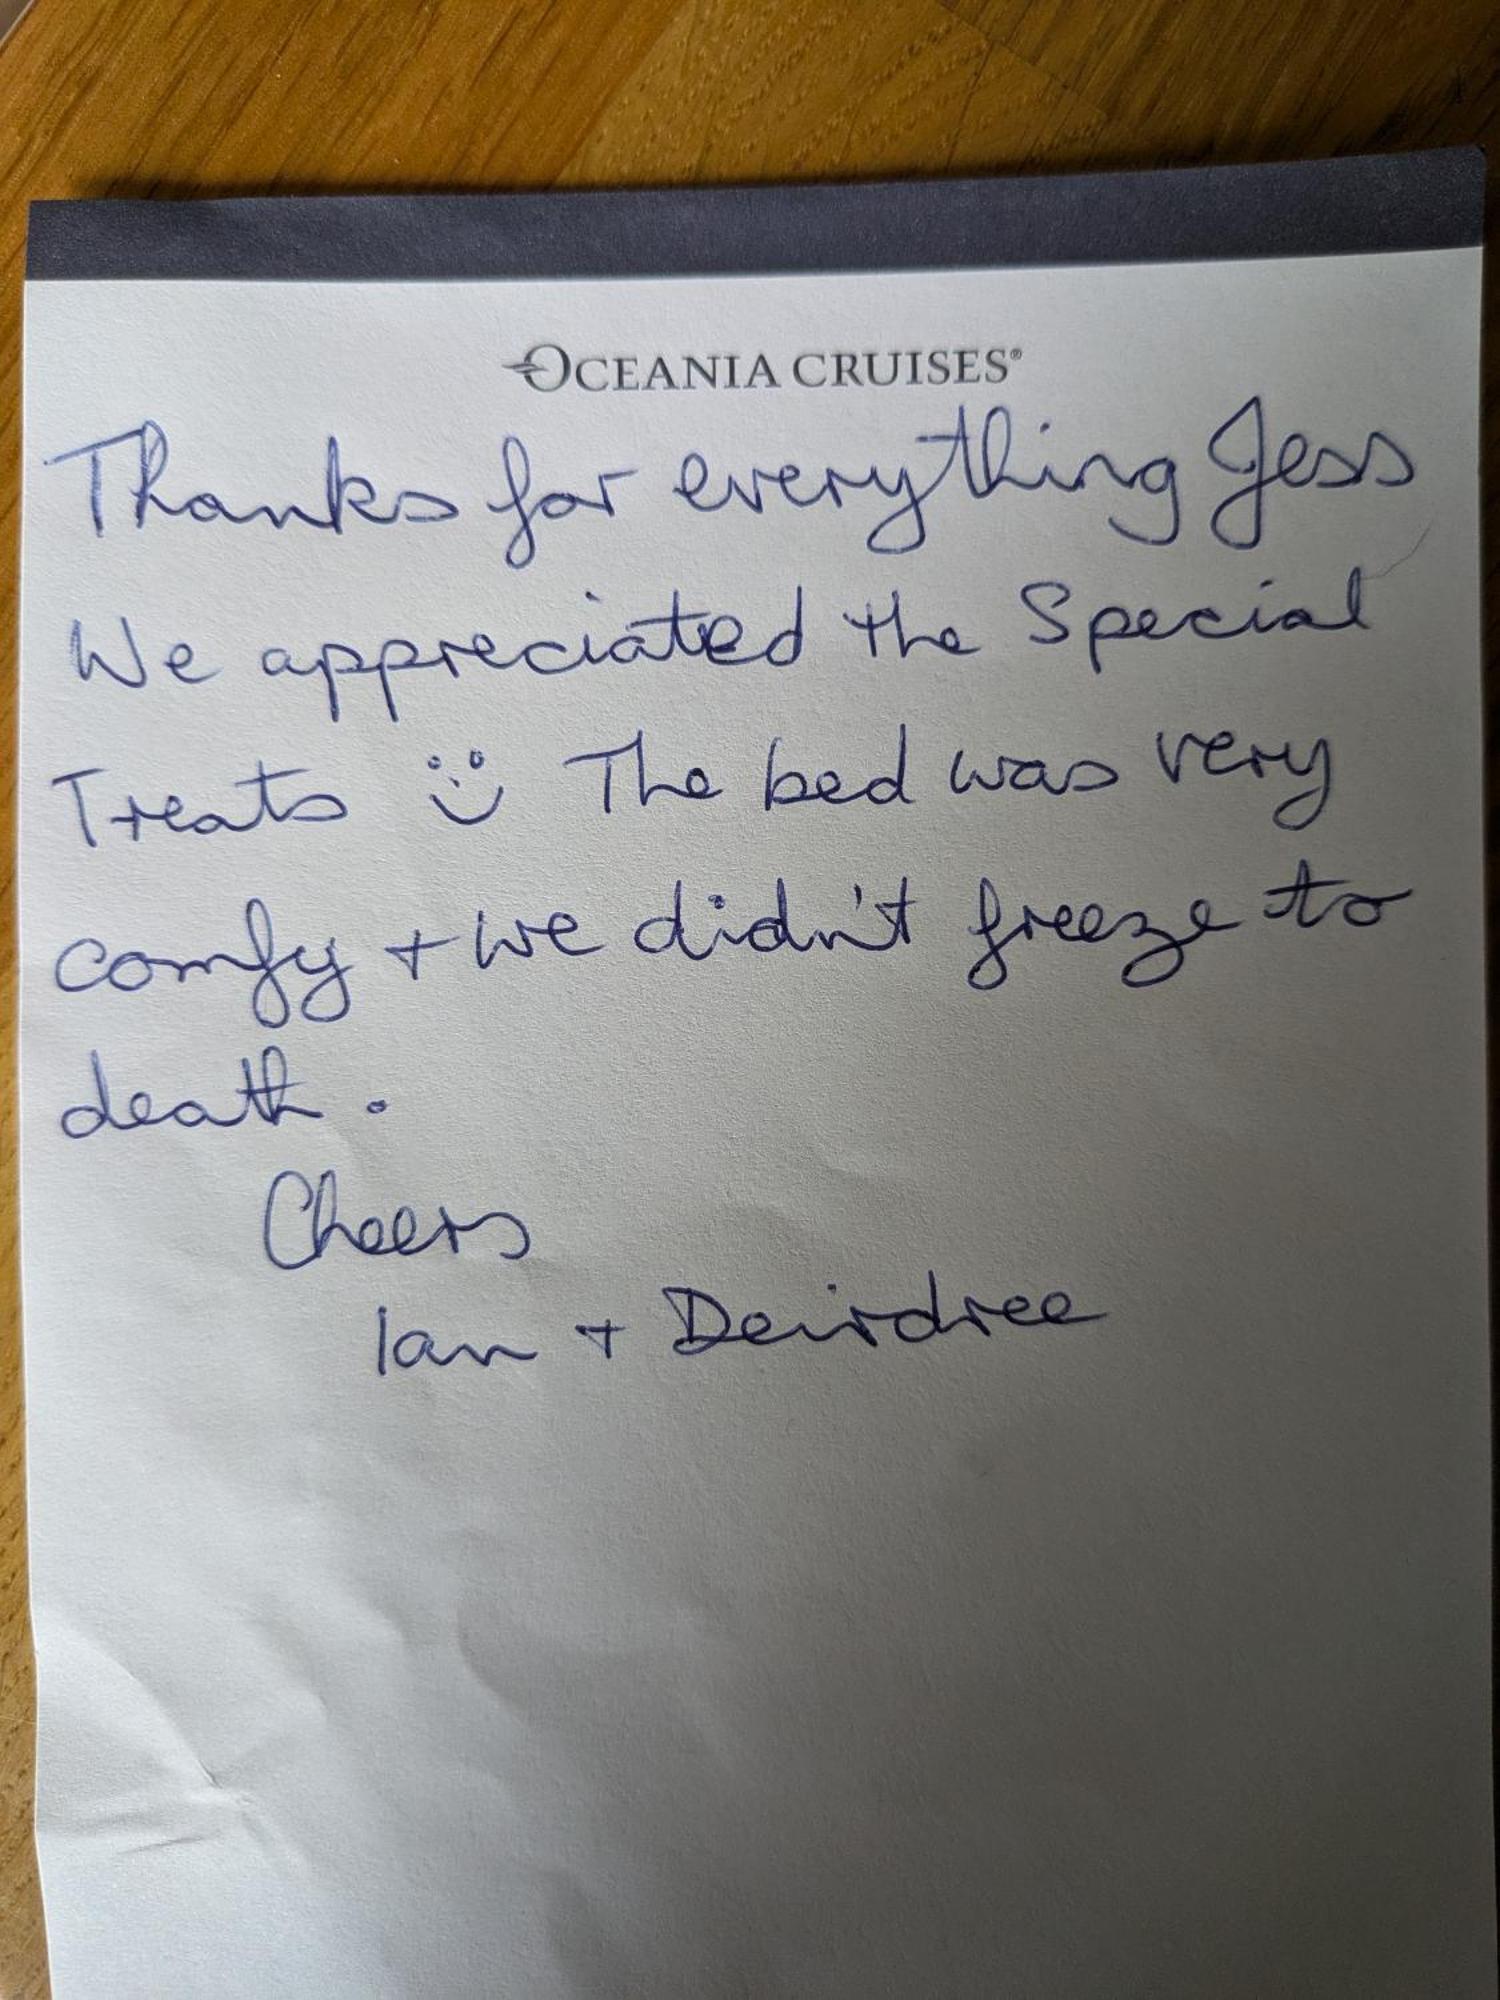 OCEANIA CRUISES®
Thanks for everything Jess
We appreciated the Special
Treats :) The bed was very
comfy + we didn't freeze to
death.
Cheers
Ian + Deirdree